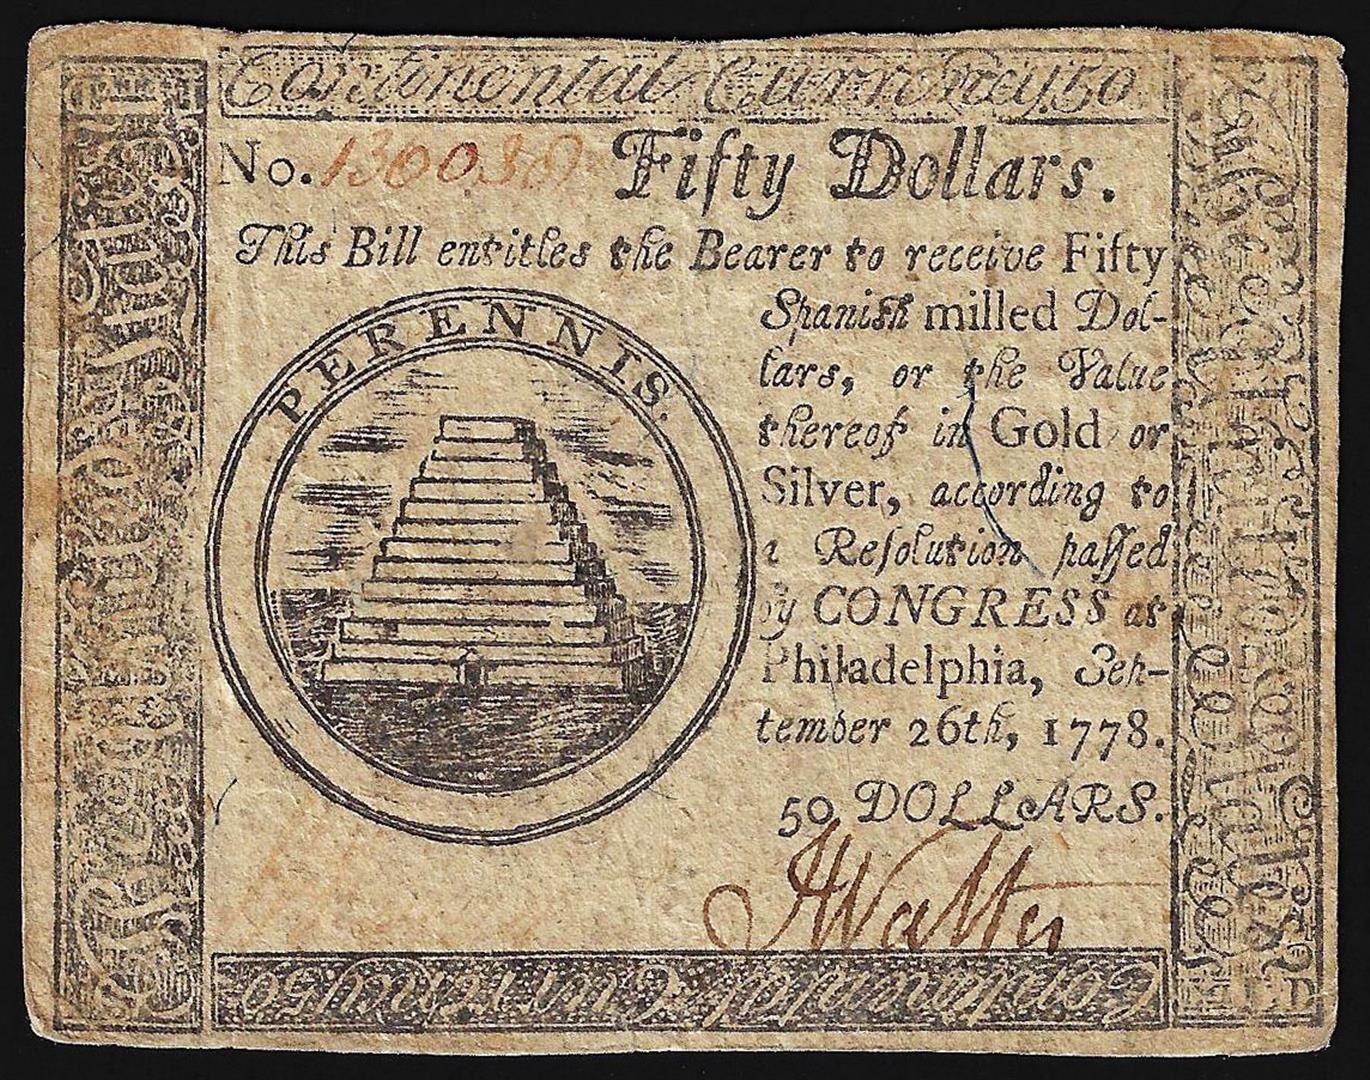 Continental Currency 50
No. 130030 Fifty Dollars.
This Bill entitles the Bearer to receive Fifty
Spanish milled Dol-
lars, or the Value
thereof in Gold or
Silver, according to
a Reſolution paſſed
by CONGRESS at
Philadelphia, Sep-
tember 26th, 1778.
50 DOLLARS.
PERENNIS.
Continental Currency 50